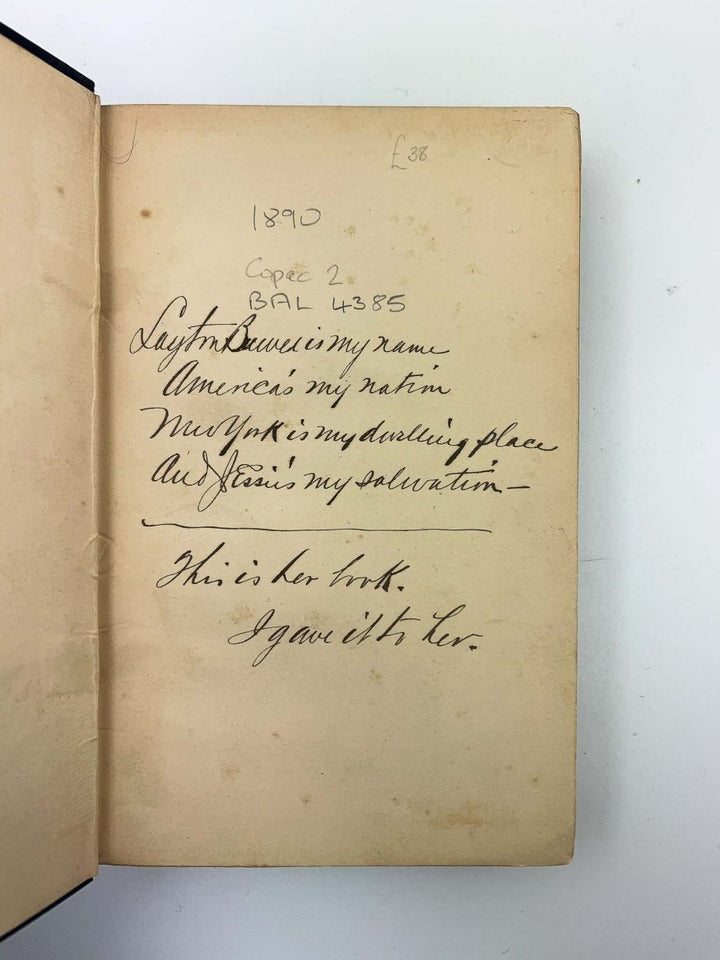 £38
1890
Copac 2
BAL 4385
Layton is my name
America's my nation
New York is my dwelling place
And Jessie's my salvation –
This is her book.
I gave it to her.